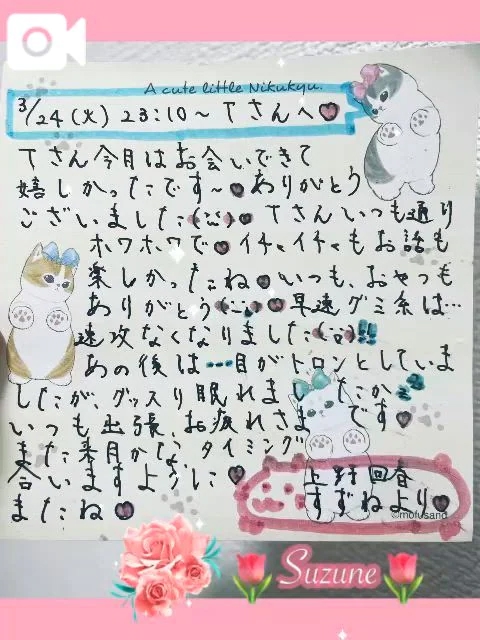 A cute little Nikukyu.
3/24(火) 23:10～ Tさんへ♥
Tさん今月はお会いできて
嬉しかったです～♥ありがとう
ございました(;;)♥ Tさんいつも通り
ホワホワで♥イチャイチャもお話も
楽しかったね♥いつも、おやつも
ありがとう(;_;)♥早速グミ系は…
速攻なくなりました(;;)!!
あの後は…目がトロンとしていま
したが、グッスリ眠れましたか
いつも出張、お疲れさまです♥
また来月かな、タイミング
合いますように♥
またね♥
上野回春
すずねより♥
©mofusand
Suzune